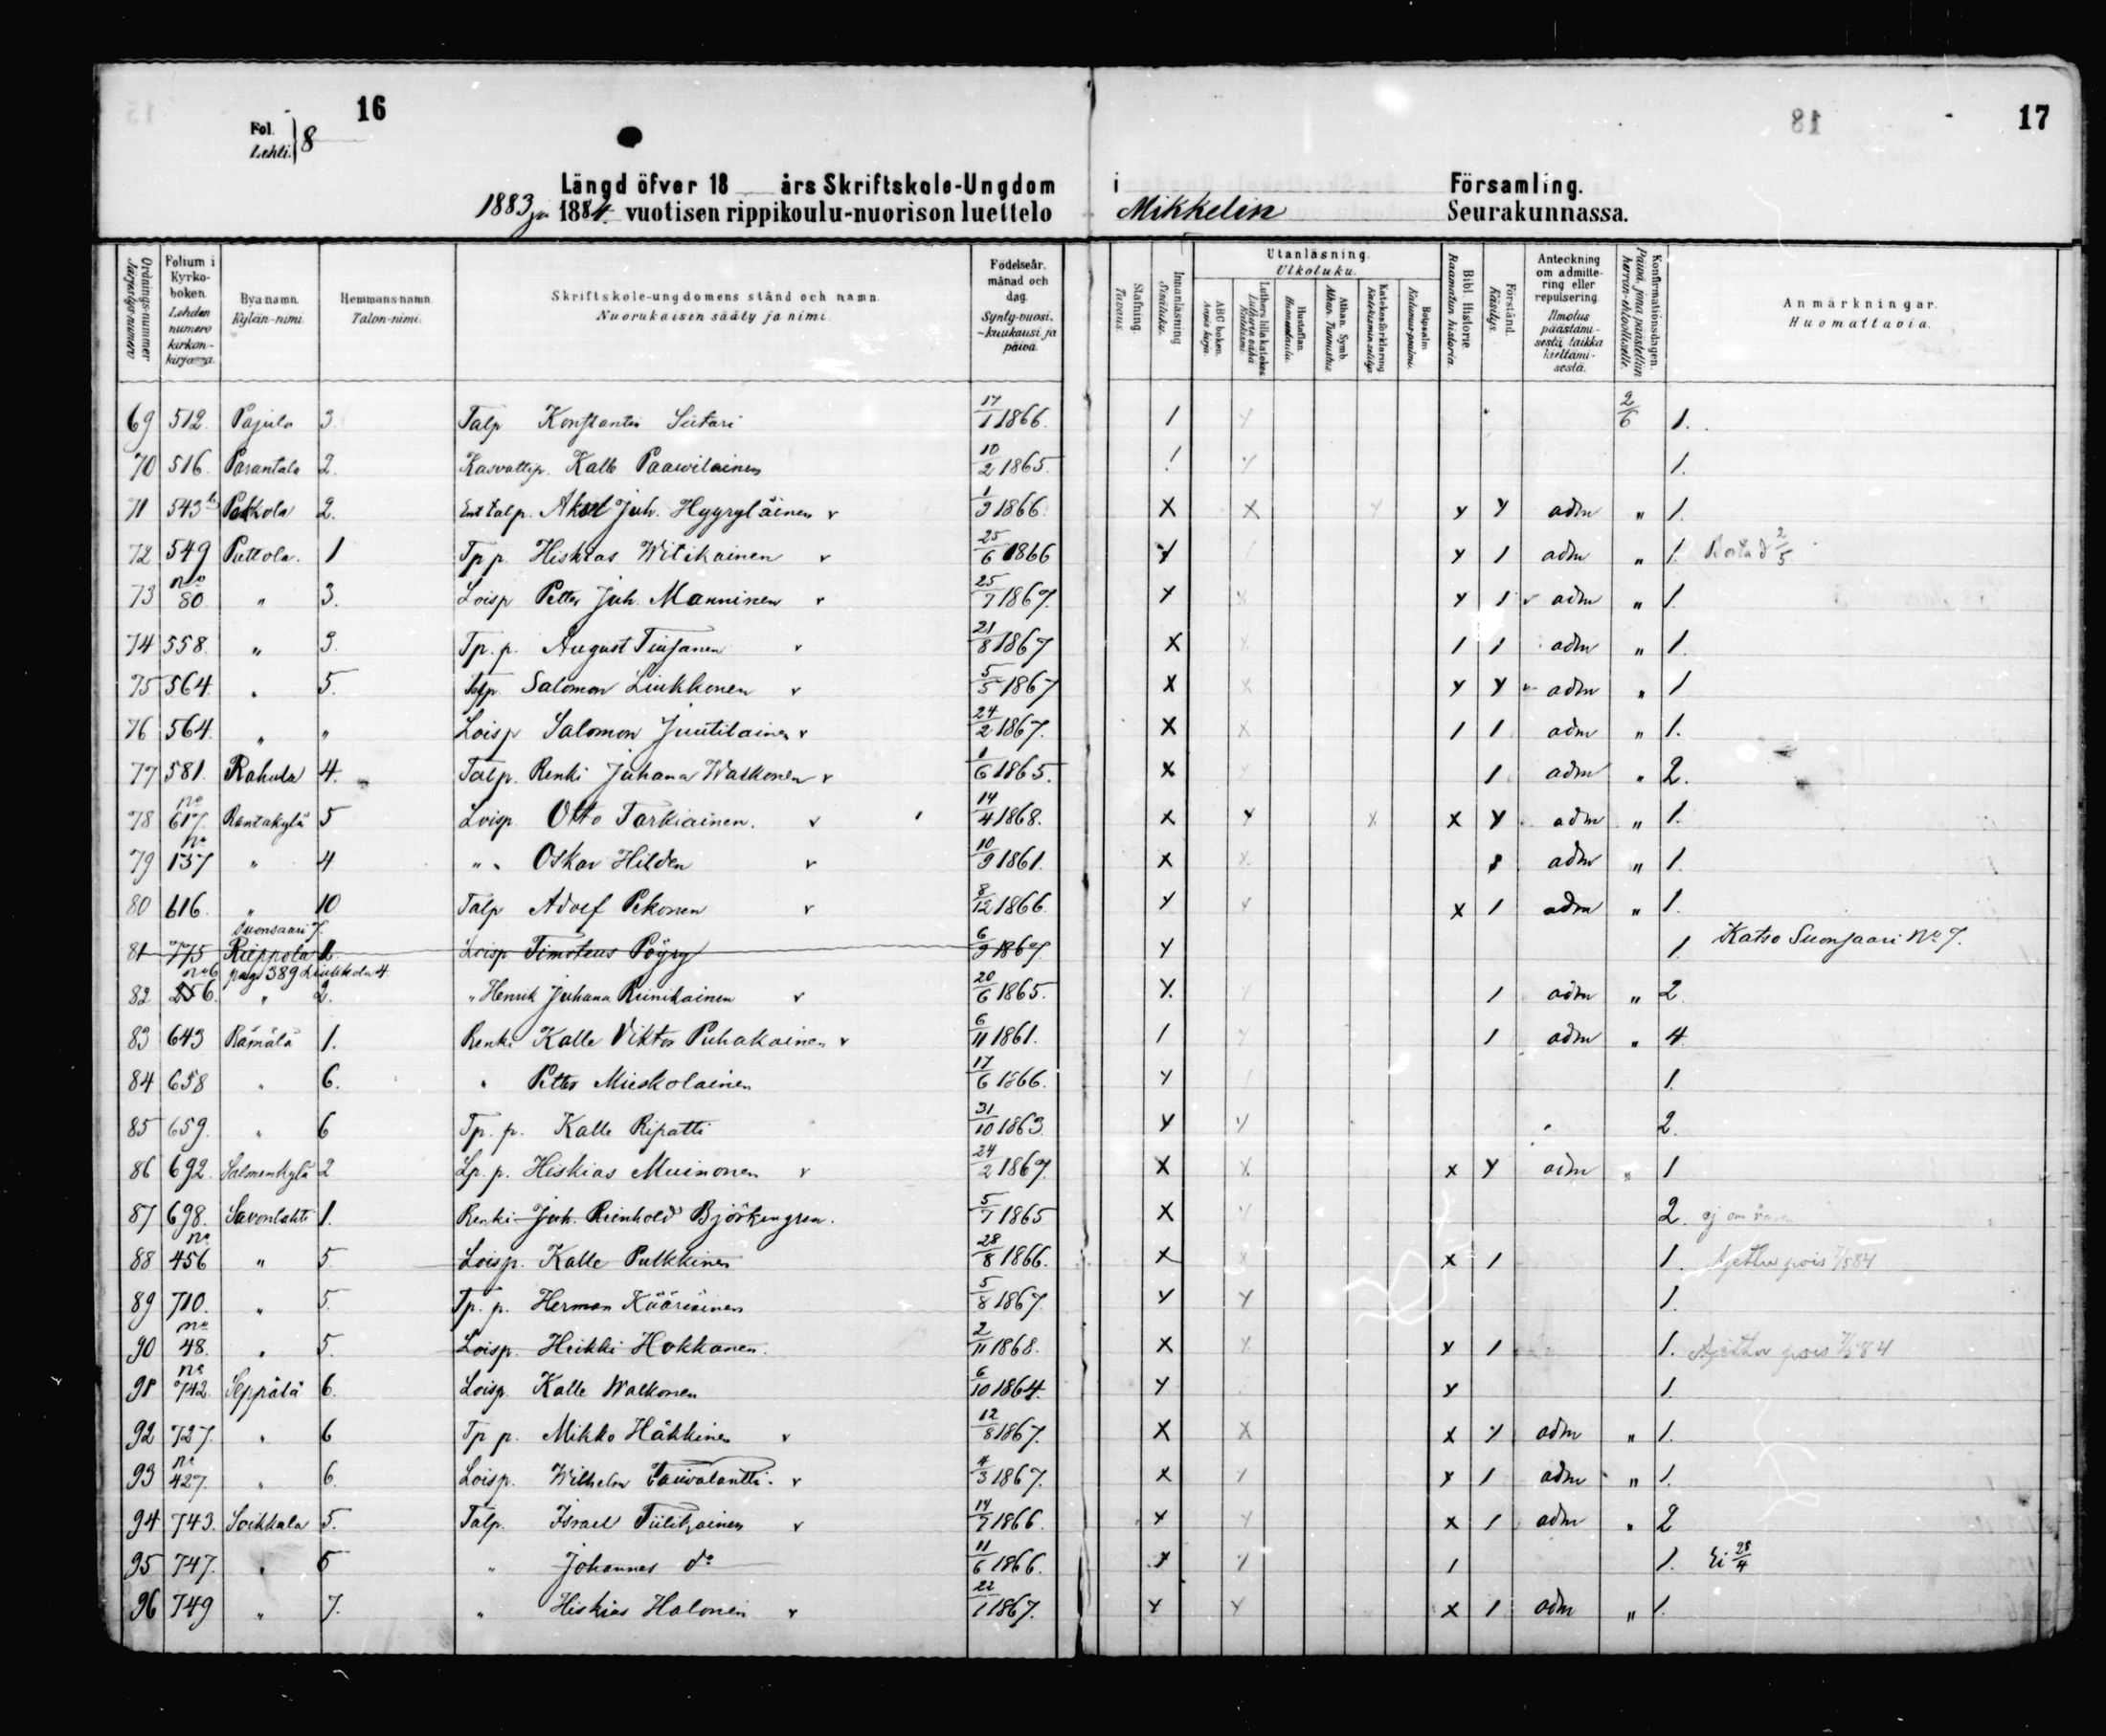 16
17
18
Fol.
Lehti. 8
Längd öfver 18 års Skriftskole-Ungdom i Församling.
1883 ja 1884 vuotisen rippikoulu-nuorison luettelo Mikkelin Seurakunnassa.
Ordnings-nummer Järjestys-numero
Folium i Kyrko-boken. Lehden numero kirkon-kirjassa.
Bya namn. Kylän-nimi.
Hemmansnamn. Talon-nimi.
Skriftskole-ungdomens stånd och namn. Nuorukaisen sääty ja nimi.
Födelseår, månad och dag. Synty-vuosi, -kuukausi ja päivä.
Stafning. Tavaus.
Innanläsning Sisäluku.
Utanläsning. Ulkoluku.
ABC boken. Aapis kirja.
Luthers lilla katekes. Lutherin vähä Katekismi.
Hustaflan. Huoneentaulu.
Athan. Symb. Athan. Tunnustus.
Katekesförklaring Katekismin-selitys
Botpsalm. Katumus-psalmi.
Bibl. Historie Raamatun historia.
Förstånd. Käsitys.
Anteckning om admitte-ring eller repulsering. Ilmoitus päästämi-sestä taikka kieltämi-sestä.
Konfirmationsdagen. Päivä, jona päästettiin herran-ehtoolliselle.
Anmärkningar. Huomattavia.
69 512. Pajula 3. Talp Konstantin Siitari 17/1 1866. 1 2/6 1.
70 516. Parantala 2. Kasvattip. Kalle Paawilainen 10/2 1865. 1.
71 543 b Pekkola 2. Ent talp. Aksel Juh. Hyyryläinen v 1/9 1866. X X Y Y adm " 1.
72 549 Puttola. 1 Tp p. Hiskias Witikainen v 25/6 1866 Y Y 1 adm " 1. Borta d 2/5
73 no 80. " 3. Loisp Petter Juh. Manninen v 25/7 1867. Y Y 1 v adm " 1.
74 558. " 3. Tp. p. August Tiusanen v 21/8 1867 X 1 1 adm " 1.
75 564. " 5. Talp. Salomon Liukkonen v 5/5 1867 X Y Y adm " 1
76 564. " " Loisp Salomon Juutilainen v 24/2 1867. X 1 1 adm " 1.
77 581. Rahula 4. Talp. Renki Juhana Walkonen v 1/6 1865. X 1 adm " 2.
78 no 617. Rantakylä 5 Loisp. Otto Tarkiainen. v 14/4 1868. X Y X X Y adm " 1.
79 no 137 " 4 " " Oskar Hilden v 10/9 1861. X adm " 1.
80 616. " 10 Talp Adolf Pekonen v 8/12 1866. Y v X 1 adm " 1.
Suonsaari 7.
81 775 Riippola Loisp Timoteus Pöyry 6/9 1867. Y 1. Katso Suonsaari No 7.
no 6 pag 389 Liukkola 4.
82 256. " 2. " Henrik Juhana Reinikainen v 20/6 1865. Y. 1 adm " 2.
83 643 Rämälä 1. Renki Kalle Viktor Puhakainen v 6/11 1861. 1 1 adm " 4.
84 658 " 6. " Petter Mieskolainen 17/6 1866. Y 1.
85 659. " 6 Tp. p. Kalle Ripatti 31/10 1863. Y Y 2.
86 692. Salmenkylä 2 Lp. p. Hiskias Muinonen v 24/2 1867. X X X Y adm " 1
87 698. Savonlahti 1. Renki Juh. Reinhold Björkengren. 5/7 1865 X 2. ej om
88 no 456 " 5. Loisp. Kalle Pulkkinen 28/8 1866. X X X 1 1. Ajettu pois 7/5 84
89 710. " 5. Tp. p. Herman Kääriäinen 5/8 1867. Y Y 1.
90 no 48. " 5. Loisp. Heikki Hokkanen. 2/11 1868. X X Y 1 1. Ajettu pois 7/5 84
91 no 742. Seppälä 6. Loisp. Kalle Walkonen 6/10 1864. Y Y 1.
92 727. " 6 Tp p. Mikko Häkkinen v 12/8 1867. X X X Y adm " 1.
93 no 427. " 6. Loisp. Wilhelm v 4/3 1867. X Y 1 adm " 1.
94 743. Soikkala 5. Talp. Israel Tiilikainen v 14/7 1866. Y Y X 1 adm " 2
95 747. " 5 " Johannes do 11/6 1866. Y Y 1 1. Ei 28/4
96 749 " 7. " Hiskias Halonen v 22/1 1867. Y Y X 1 adm " 1.